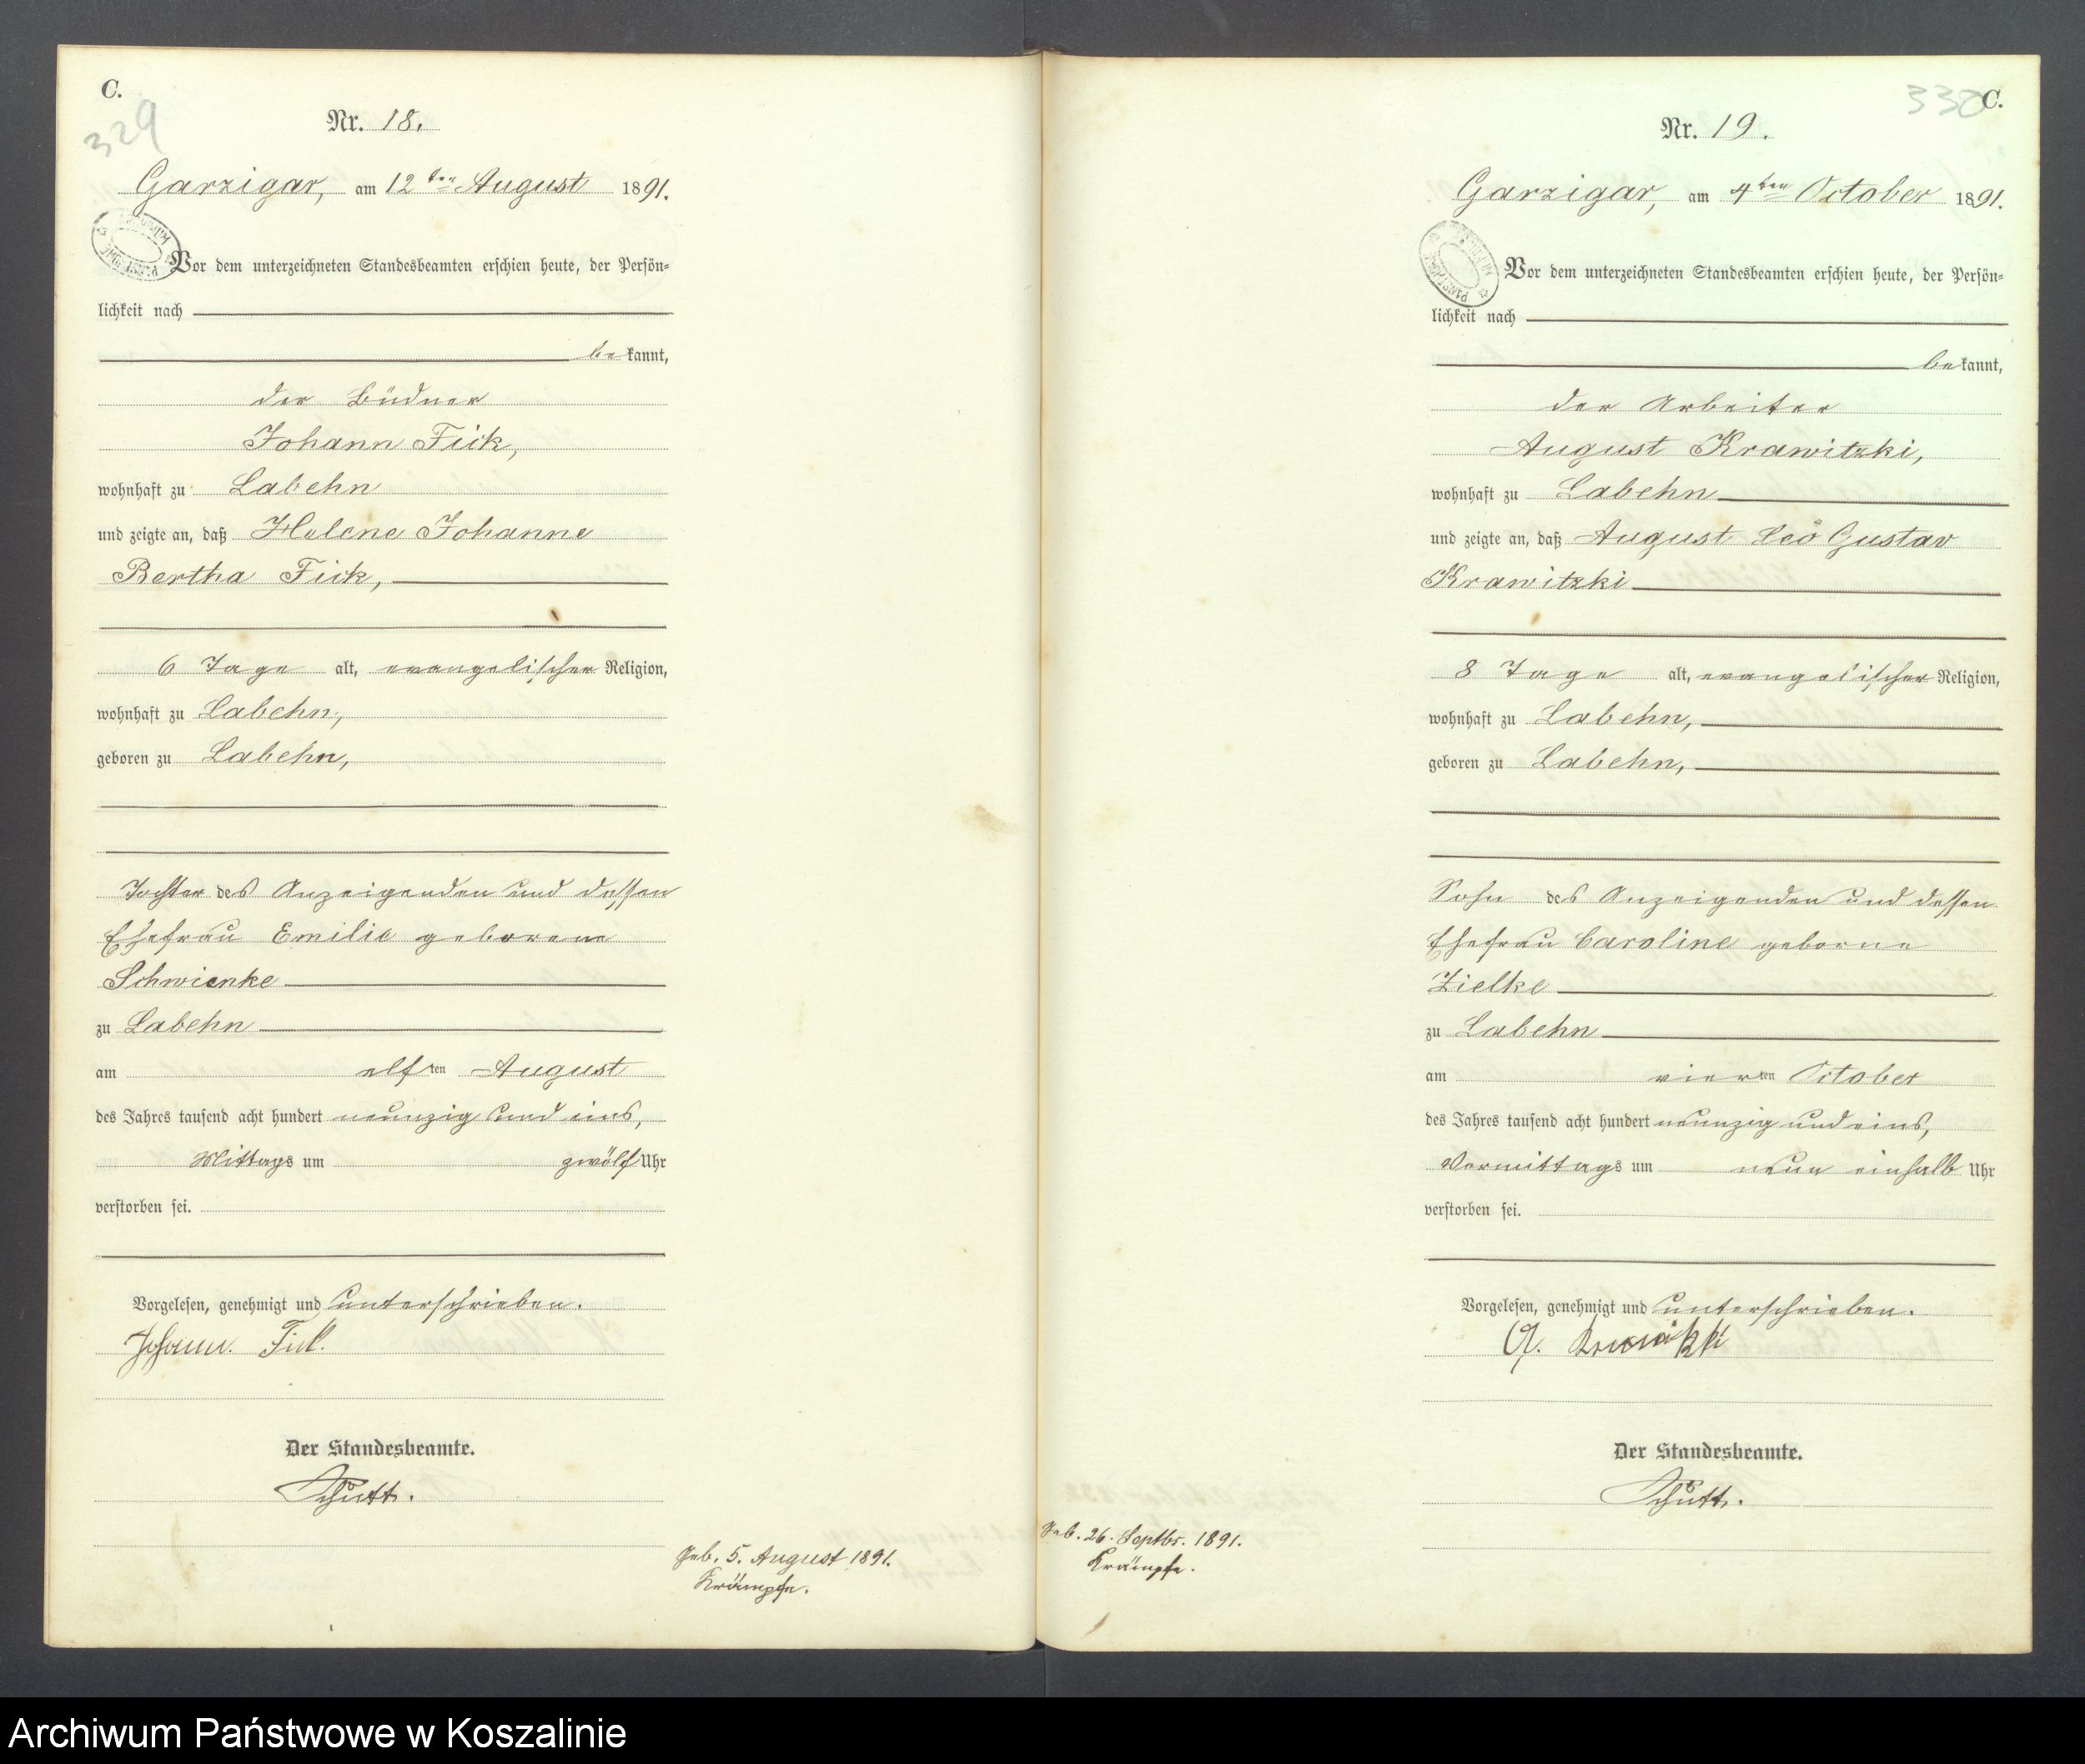 C.
329
Nr. 18.
Garzigar, am 12ten August 1891.
Vor dem unterzeichneten Standesbeamten erschien heute, der Persön-
lichkeit nach
bekannt,
der Büdner
Johann Fick,
wohnhaft zu Labehn
und zeigte an, daß Helene Johanne
Bertha Fick,
6 Tage alt, evangelischer Religion,
wohnhaft zu Labehn,
geboren zu Labehn,
Tochter des Anzeigenden und dessen
Ehefrau Emilie geborene
Schwienke
zu Labehn
am elften August
des Jahres tausend acht hundert neunzig und eins,
Mittags um zwölf Uhr
verstorben sei.
Vorgelesen, genehmigt und unterschrieben.
Johann. Fick.
Der Standesbeamte.
Schütt.
Geb. 5. August 1891.
Krämpfe.
330
C.
Nr. 19.
Garzigar, am 4ten October 1891.
Vor dem unterzeichneten Standesbeamten erschien heute, der Persön-
lichkeit nach
bekannt,
der Arbeiter
August Krawitzki,
wohnhaft zu Labehn
und zeigte an, daß August Leo Gustav
Krawitzki
8 Tage alt, evangelischer Religion,
wohnhaft zu Labehn,
geboren zu Labehn,
Sohn des Anzeigenden und dessen
Ehefrau Caroline geborne
Zielke
zu Labehn
am vierten October
des Jahres tausend acht hundert neunzig und eins,
Vormittags um neun einhalb Uhr
verstorben sei.
Vorgelesen, genehmigt und unterschrieben.
A.
Der Standesbeamte.
Schütt.
Geb. 26. Septbr. 1891.
Krämpfe.
Archiwum Państwowe w Koszalinie